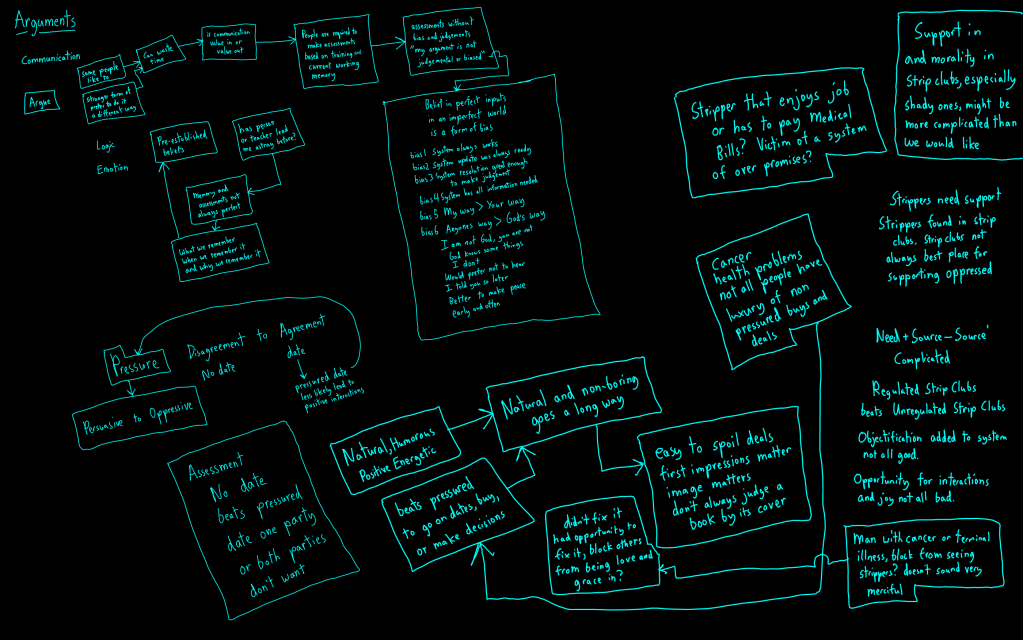 Arguments
Communication
Argue
some people
like to
stronger form of
prefer to do it
a different way
Can waste
time
is communication
value in or
value out
People are required to
make assessments
based on training and
current working
memory
assessments without
bias and judgements
"my argument is not
judgemental or biased"
Belief in perfect inputs
in an imperfect world
is a form of bias
bias 1 System always works
bias 2 System update was always ready
bias 3 System resolution good enough
to make judgement
bias 4 System has all information needed
bias 5 My way > Your way
bias 6 Anyones way > God's way
I am not God, you are not
God knows some things
I don't
Would prefer not to hear
I told you so later
Better to make peace
early and often
Logic
Emotion
Pre-established
beliefs
has person
or teacher lead
me astray before?
Memory and
assessments not
always perfect
What we remember
when we remember it
and why we remember it
Pressure
Persuasive to Oppressive
Disagreement to Agreement
No date
date
pressured date
less likely lead to
positive interactions
Assessment
No date
beats pressured
date one party
or both parties
don't want
Natural, Humorous
Positive Energetic
beats pressured
to go on dates, buy,
or make decisions
Natural and non-boring
goes a long way
easy to spoil deals
first impressions matter
image matters
don't always judge a
book by its cover
didn't fix it
had opportunity to
fix it, block others
from being love and
grace in?
Stripper that enjoys job
or has to pay Medical
Bills? Victim of a system
of over promises?
Cancer
health problems
not all people have
luxury of non
pressured buys and
deals
Support in
and morality in
Strip clubs, especially
shady ones, might be
more complicated than
we would like
Strippers need support
Strippers found in strip
clubs. Strip clubs not
always best place for
supporting oppressed
Need + Source - Source'
Complicated
Regulated Strip Clubs
beats Unregulated Strip Clubs
Objectification added to system
not all good.
Opportunity for interactions
and joy not all bad.
Man with cancer or terminal
illness, block from seeing
strippers? doesn't sound very
merciful